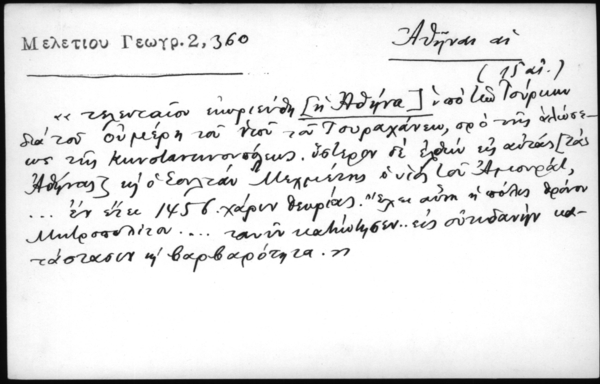 Μελετίου Γεωγρ. 2, 360
Ἀθῆναι αἱ
(15 αἰ.)
« τελευταῖον ἐκυριεύθη [ἡ Ἀθήνα] ὑπὸ τῶν Τούρκων
διὰ τοῦ Οὐμέρη τοῦ υἱοῦ τοῦ Τουραχάνεω, πρὸ τῆς ἁλώσε-
ως τῆς Κωνσταντινουπόλεως. ὕστερον δὲ ἐλθὼν εἰς αὐτὰς [τὰς
Ἀθήνας] κὴ ὁ Σουλτὰν Μεχμέτης ὁ υἱὸς τοῦ Ἀμουράτ,
... ἐν ἔτει 1456 χάριν θεωρίας. Ἔχει αὕτη ἡ πόλις θρόνον
Μητροπολίτου .... τανῦν κατήντησεν .. εἰς οὐτιδανὴν κα-
τάστασιν κὴ βαρβαρότητα. »